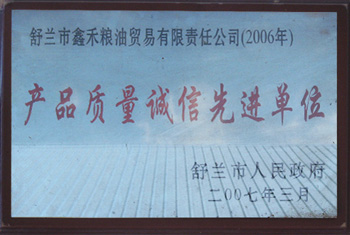 舒兰市鑫禾粮油贸易有限责任公司(2006年)
产品质量诚信先进单位
舒兰市人民政府
二00七年三月